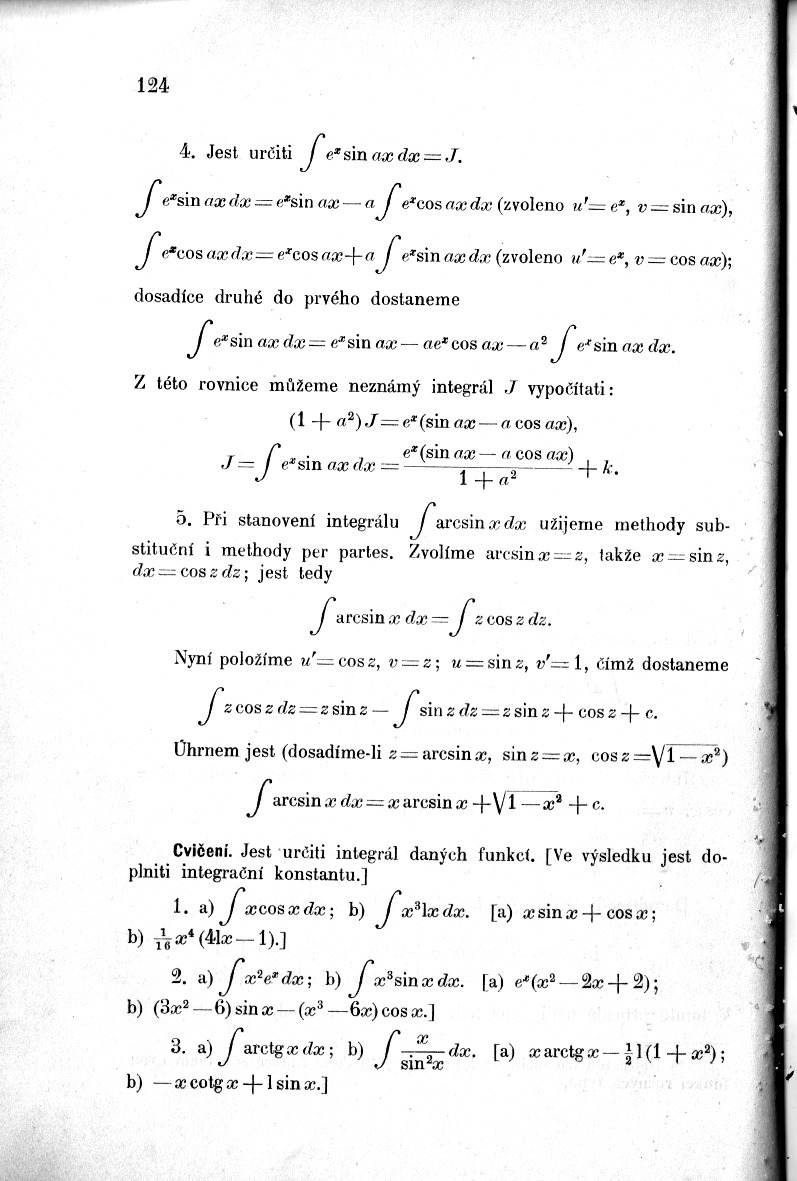 124
4. Jest určiti ∫ eˣ sin ax dx = J.
∫ eˣ sin ax dx = eˣ sin ax — a ∫ eˣ cos ax dx (zvoleno u′ = eˣ, v = sin ax),
∫ eˣ cos ax dx = eˣ cos ax + a ∫ eˣ sin ax dx (zvoleno u′ = eˣ, v = cos ax);
dosadíce druhé do prvého dostaneme
∫ eˣ sin ax dx = eˣ sin ax — aeˣ cos ax — a² ∫ eˣ sin ax dx.
Z této rovnice můžeme neznámý integrál J vypočítati:
(1 + a²) J = eˣ (sin ax — a cos ax),
J = ∫ eˣ sin ax dx = eˣ (sin ax — a cos ax) / 1 + a² + k.
5. Při stanovení integrálu ∫ arcsin x dx užijeme methody sub-
stituční i methody per partes. Zvolíme arcsin x = z, takže x = sin z,
dx = cos z dz; jest tedy
∫ arcsin x dx = ∫ z cos z dz.
Nyní položíme u′ = cos z, v = z; u = sin z, v′ = 1, čímž dostaneme
∫ z cos z dz = z sin z — ∫ sin z dz = z sin z + cos z + c.
Úhrnem jest (dosadíme-li z = arcsin x, sin z = x, cos z = √1 — x²)
∫ arcsin x dx = x arcsin x + √1 — x² + c.
Cvičení. Jest určiti integrál daných funkcí. [Ve výsledku jest do-
plniti integrační konstantu.]
1. a) ∫ x cos x dx; b) ∫ x³ lx dx. [a) x sin x + cos x;
b) 1/16 x⁴ (4lx — 1).]
2. a) ∫ x² eˣ dx; b) ∫ x³ sin x dx. [a) eˣ (x² — 2x + 2);
b) (3x² — 6) sin x — (x³ — 6x) cos x.]
3. a) ∫ arctg x dx; b) ∫ x / sin² x dx. [a) x arctg x — ½ l (1 + x²);
b) — x cotg x + l sin x.]